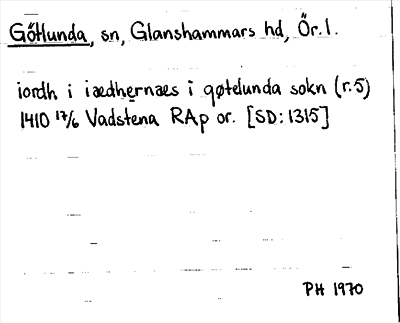 Götlunda, sn, Glanshammars hd, Ör.l.
iordh i iædhernæs i gøtelunda sokn (r.5)
1410 17/6 Vadstena RAp or. [SD:1315]
PH 1970